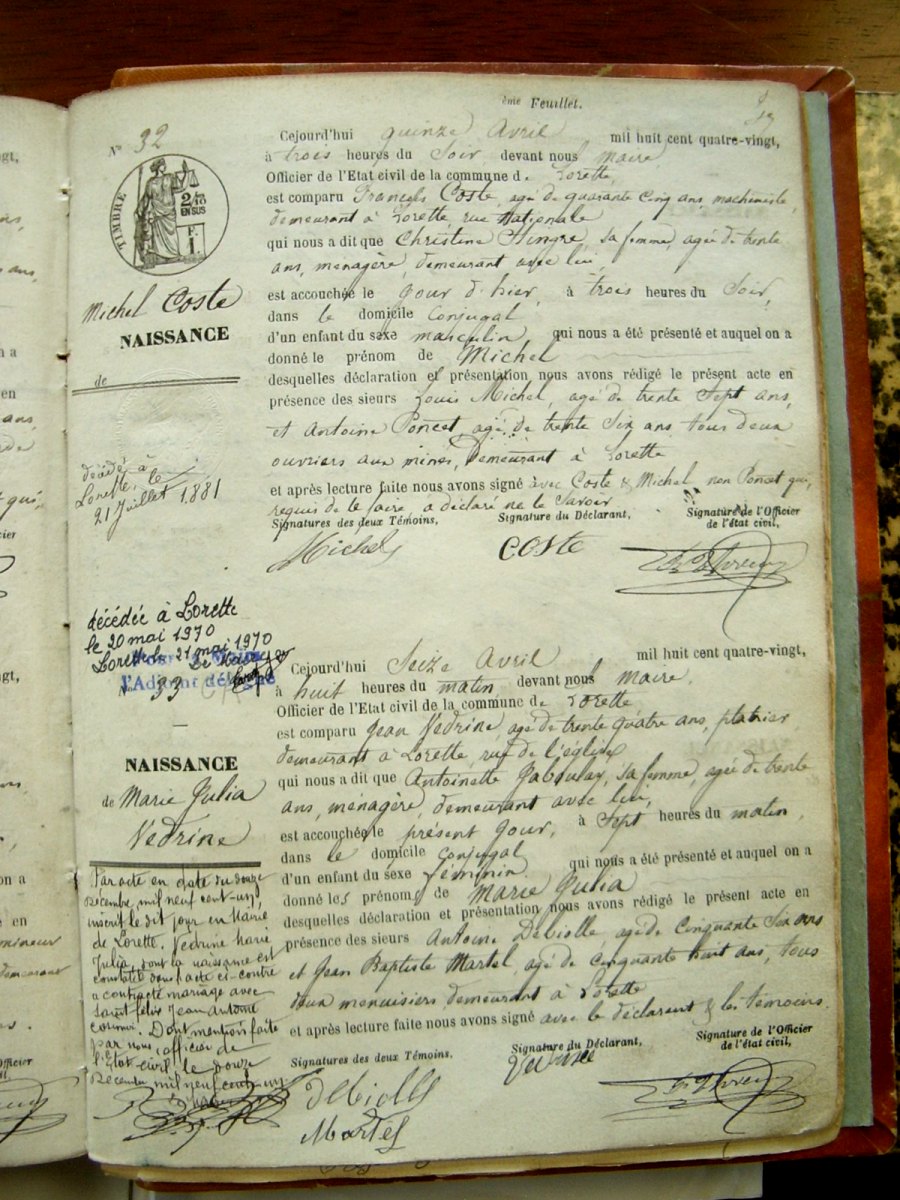 ème Feuillet.
N° 32
TIMBRE
2/10
EN SUS
F.
1.
Michel Coste
NAISSANCE
de
décédé à
Lorette, le
21 Juillet 1881
Cejourd'hui quinze Avril mil huit cent quatre-vingt,
à trois heures du Soir, devant nous Maire
Officier de l'Etat civil de la commune de Lorette
est comparu François Coste, agé de quarante cinq ans, machiniste,
demeurant à Lorette, rue Nationale
qui nous a dit que Christine Hingre, sa femme, agée de trente
ans, ménagère, demeurant avec lui
est accouchée le jour d'hier, à trois heures du Soir,
dans le domicile conjugal
d'un enfant du sexe masculin, qui nous a été présenté et auquel on a
donné le prénom de Michel
desquelles déclaration et présentation nous avons rédigé le présent acte en
présence des sieurs Louis Michel, agé de trente Sept ans,
et Antoine Poncet, agé de trente Six ans tous deux
ouvriers aux mines, demeurant à Lorette
et après lecture faite nous avons signé avec Coste & Michel, non Poncet qui,
requis de le faire a déclaré ne le Savoir
Signatures des deux Témoins, Signature du Déclarant, Signature de l'Officier
de l'état civil,
Michel COSTE
décédée à Lorette
le 20 mai 1970
Lorette le 21 mai 1970
Le Maire
l'Adjoint délégué
33
NAISSANCE
de Marie Julia
Vedrine
Par acte en date du douze
Décembre, mil neuf cent-un,
inscrit le dit jour en Mairie
de Lorette. Vedrine Marie
Julia, dont la naissance est
constatée dans l'acte ci-contre
a contracté mariage avec
Saint félix Jean Antoine
Dont mention faite
par nous officier de
l'Etat-civil le douze
Décembre mil neuf cent-un
Cejourd'hui Seize Avril mil huit cent quatre-vingt,
à huit heures du matin, devant nous Maire
Officier de l'Etat civil de la commune de Lorette
est comparu Jean Vedrine, agé de trente quatre ans, platrier
demeurant à Lorette, rue de l'église
qui nous a dit que Antoinette sa femme, agée de trente
ans, ménagère, demeurant avec lui,
est accouchée le présent jour, à Sept heures du matin,
dans le domicile conjugal
d'un enfant du sexe féminin qui nous a été présenté et auquel on a
donné les prénoms de Marie Julia
desquelles déclaration et présentation nous avons rédigé le présent acte en
présence des sieurs Antoine Debiolle, agé de Cinquante Six ans
et Jean Baptiste Martel, agé de Cinquante huit ans, tous
deux menuisiers demeurant à Lorette
et après lecture faite nous avons signé avec le déclarant & les témoins.
Signatures des deux Témoins, Signature du Déclarant, Signature de l'Officier
de l'état civil,
Debiolle Vedrine
Martel